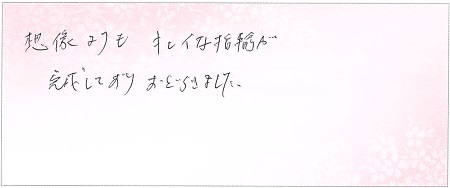 想像よりも キレイな指輪が
完成しており おどろきました。